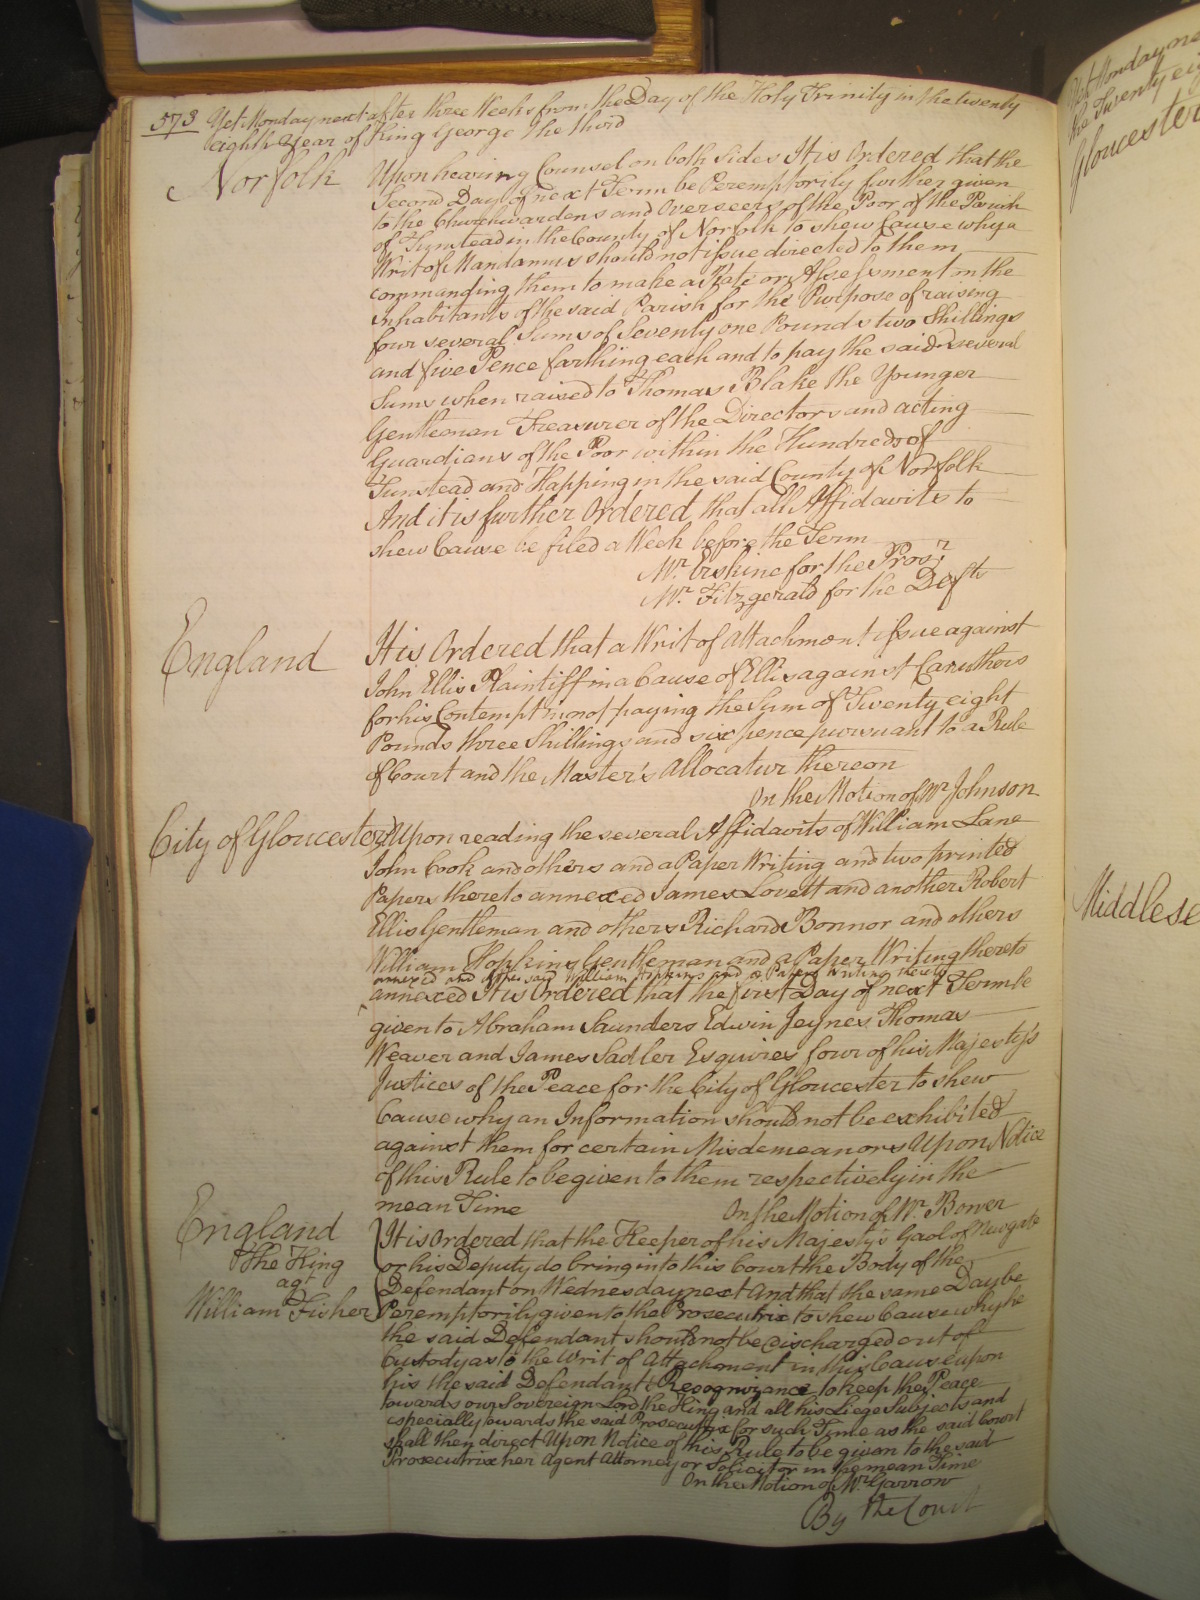 573 Yet Monday next after three Weeks from the Day of the Holy Trinity in the twenty
eighth Year of King George the third
Norfolk
Upon hearing Counsel on both Sides It is Ordered that the
Second Day of next Term be Peremptorily further given
to the Churchwardens and Overseers of the Poor of the Parish
of Tunstead in the County of Norfolk to shew Cause why a
Writ of Mandamus should not issue directed to them
commanding them to make a Rate or Assessment on the
inhabitants of the said Parish for the Purpose of raising
four several Sums of Seventy one Pounds two Shillings
and five Pence farthing each and to pay the said several
Sums when raised to Thomas Blake the Younger
Gentleman Treasurer of the Directors and acting
Guardians of the Poor within the Hundreds of
Tunstead and Happing in the said County of Norfolk
And it is further Ordered that all Affidavits to
shew Cause be filed a Week before the Term
Mr. Erskine for the Prosr.
Mr. Fitzgerald for the Defts
England
It is Ordered that a Writ of Attachment issue against
John Ellis Plaintiff in a Cause of Ellis against Caruthers
for his Contempt in not paying the Sum of Twenty eight
Pounds three Shillings and six pence pursuant to a Rule
of Court and the Master's Allocatur thereon
On the Motion of Mr Johnson
City of Gloucester
Upon reading the several Affidavits of William Lane
John Cook and others and a Paper Writing and two printed
Papers thereto annexed James Lovett and another Robert
Ellis Gentleman and others Richard Bonnor and others
William Hopkins Gentleman and a Paper Writing thereto
annexed and of the said William Hopkins and a Paper Writing thereto
annexed It is Ordered that the first Day of next Term be
given to Abraham Saunders Edwin Jeynes Thomas
Weaver and James Sadler Esquires four of his Majesty's
Justices of the Peace for the City of Gloucester to shew
Cause why an Information should not be exhibited
against them for certain Misdemeanors Upon Notice
of this Rule to be given to them respectively in the
mean Time
On the Motion of Mr. Bower
England
The King
agt
William Fisher
It is Ordered that the Keeper of his Majesty's Gaol of Newgate
or his Deputy do bring into this Court the Body of the
Defendant on Wednesday next And that the same Day be
Peremptorily given to the Prosecutrix to shew Cause why he
the said Defendant should not be discharged out of
Custody as to the Writ of Attachment in this Cause upon
his the said Defendants Recognizance to keep the Peace
towards our Sovereign Lord the King and all his Liege Subjects and
especially towards the said Prosecutrix for such Time as the said Court
shall then direct Upon Notice of this Rule to be given to the said
Prosecutrix her Agent Attorney or Solicitor in the mean Time
On the Motion of Mr. Garrow
By the Court
Yet Monday ne
the Twenty ei
Gloucester
Middlese